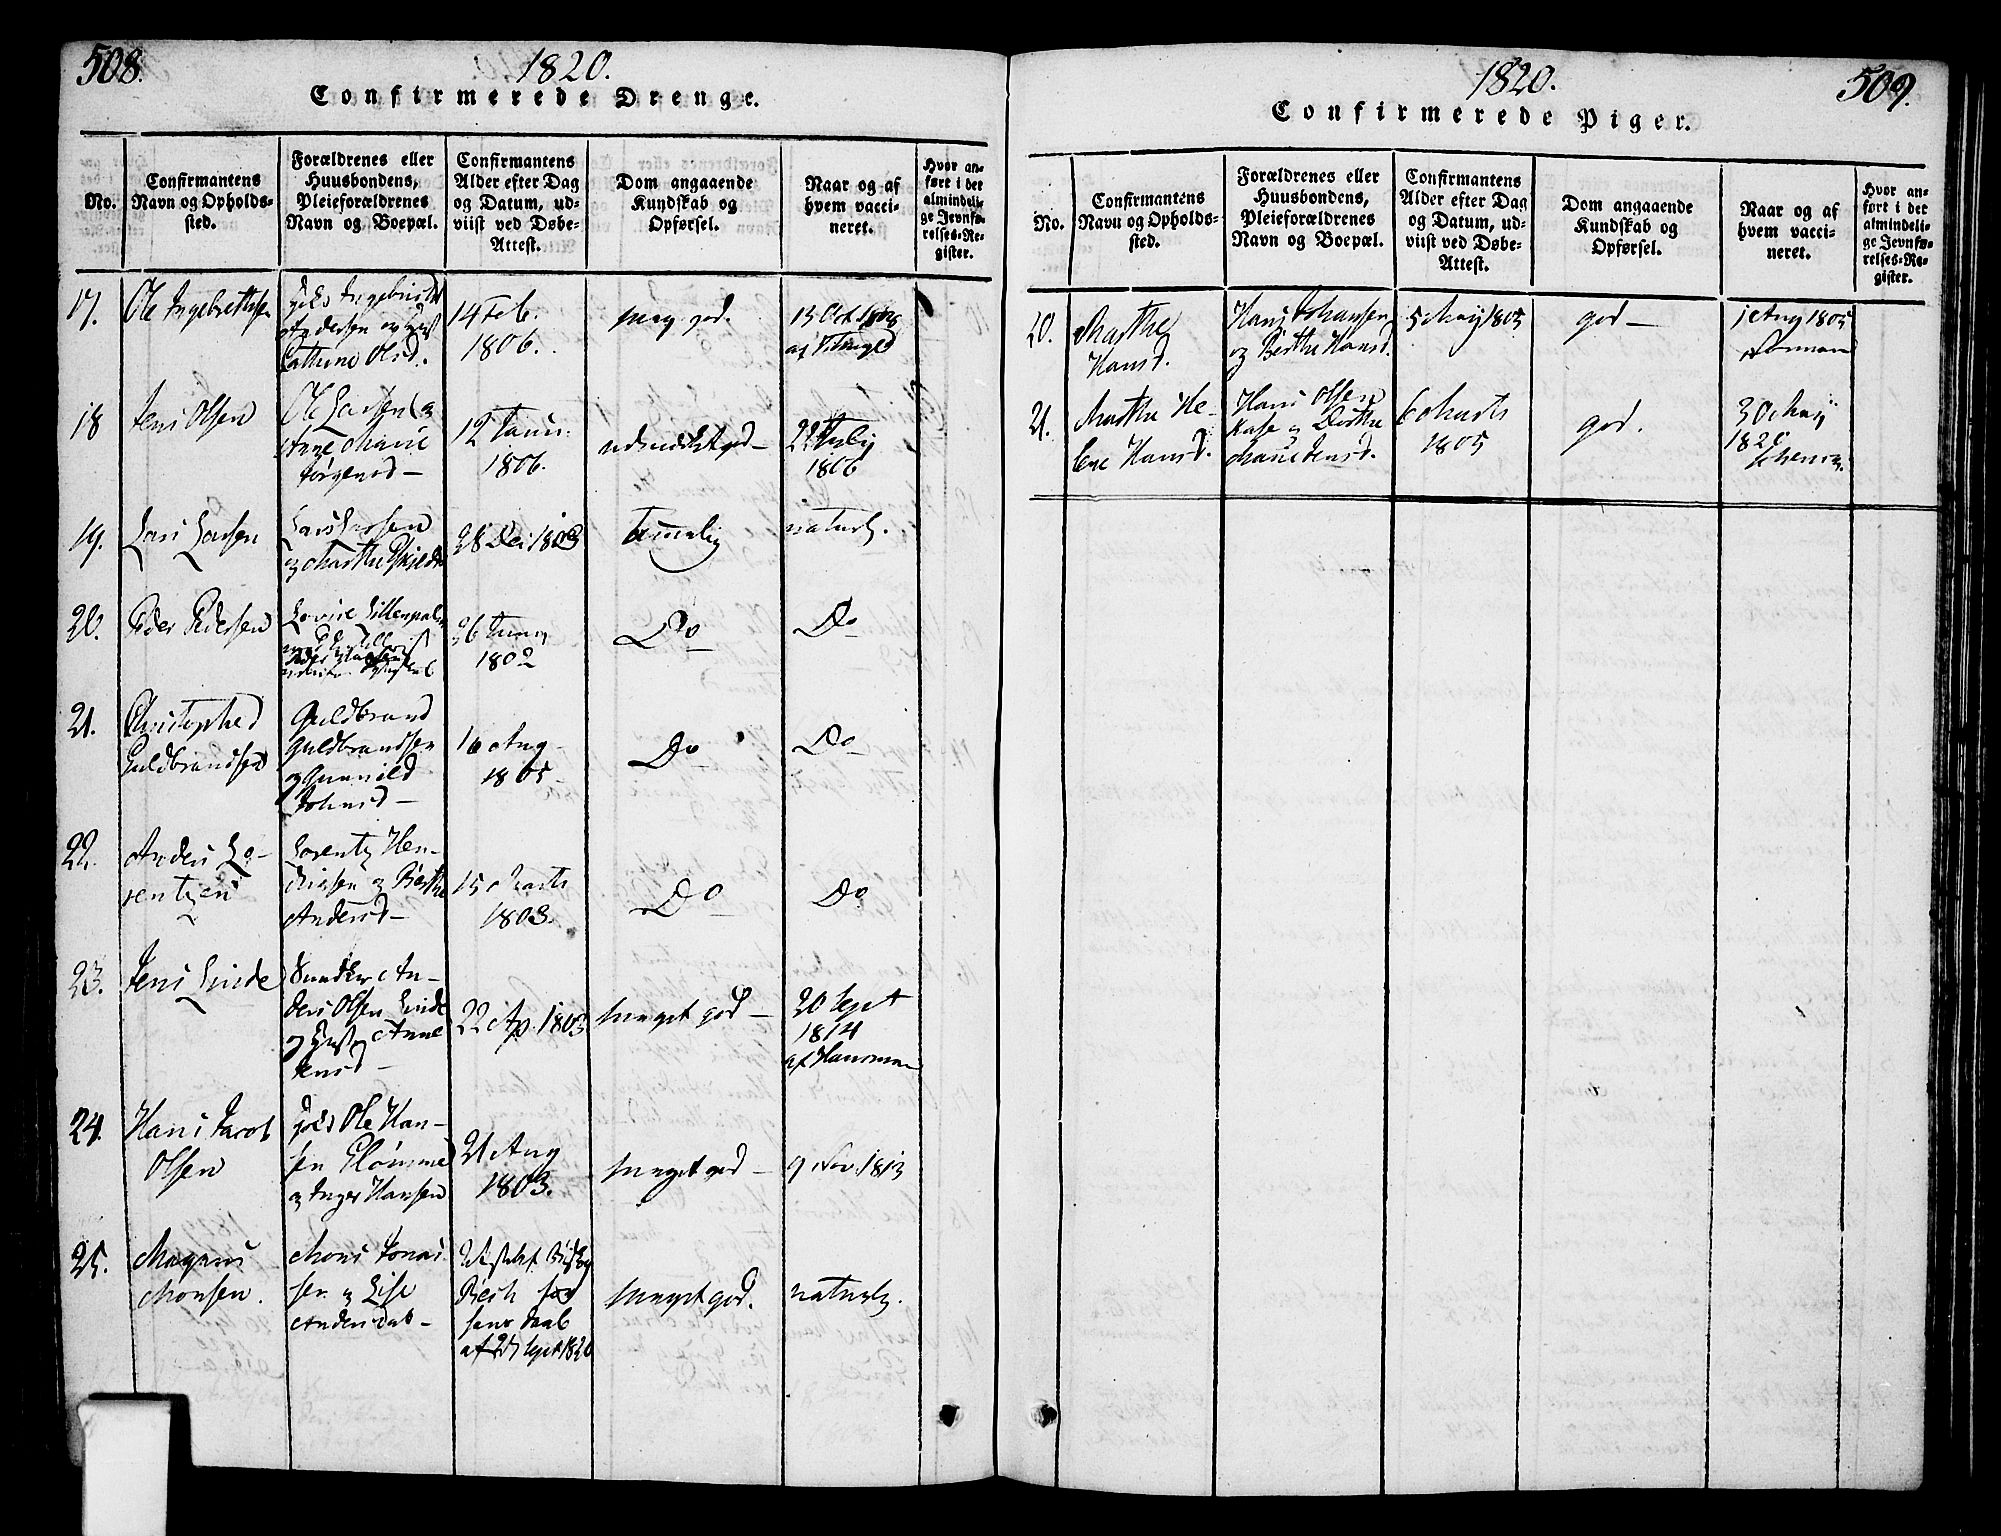 508.
1820.
Confirmerede Drenge.
No.
Confirmantens
Navn og Opholds-
sted.
Forældrenes eller
Huusbondens,
Pleieforældrenes
Navn og Boepæl.
Confirmantens
Alder efter Dag
og Datum, ud-
viist ved Døbe-
Attest.
Dom angaaende
Kundskab og
Opførsel.
Naar og af
hvem vacci-
neret.
Hvor an-
ført i det
almindeli-
ge Jevnfø-
relses-Re-
gister.
17.
Ole Ingebrethsen
Andersen og
Cathrine Olsd.
14 Feb.
1806.
god.
13 Oct
af
18
Jens Olsen
Ole Larsen og
Anne Marie
Jørgensd
12 Januar
1806.
udmerket god
22 July
1806
19.
Lars Larsen
Lars Larsen
og Marthe
28 Dec 1803
temmelig
naturlig.
20.
Peder Pedersen
26
1802
Do
Do
21.
Christopher
Guldbrandsen
Guldbrand
Guldbrandsen
og Gunnild
Johnsd
16 Aug
1805
Do
Do
22.
Anders Lo-
rentzen
Lorentz Hen-
dricsen og Berthe
Andersd
15 Marts
1803.
Do
Do
23.
Jens Linde
Anders Olsen Linde
og Anne
Jensd
22 Ap. 1803
meget god
20 Sept
1814
af
24.
Hans Jacob
Olsen
Ole Han-
sen Glomme
og Inger Hansen
21 Aug
1803.
meget god
9 Nov. 1813
25.
Magnus
Monsen.
Mons Jonas-
sen og Lise
Andersdat
for
hans daab
af 25 Sept 1820
meget god.
naturlig.
1820.
509.
Confirmerede Piger.
No.
Confirmantens
Navn og Opholds-
sted.
Forældrenes eller
Huusbondens,
Pleieforældrenes
Navn og Boepæl.
Confirmantens
Alder efter Dag
og Datum, ud-
viist ved Døbe-
Attest.
Dom angaaende
Kundskab og
Opførsel.
Naar og af
hvem vacci-
neret.
Hvor an-
ført i det
almindeli-
ge Jevnfø-
relses-Re-
gister.
20.
Marthe
Hansd.
Hans Johansen
og Berthe Hansd.
5 May 1805
god
1 Aug 1805
21.
Marthe He-
lene Hansd.
Hans Olsen
og Dorthe
Marie Jensd.
6 Marts
1805
god.
30 May
1820